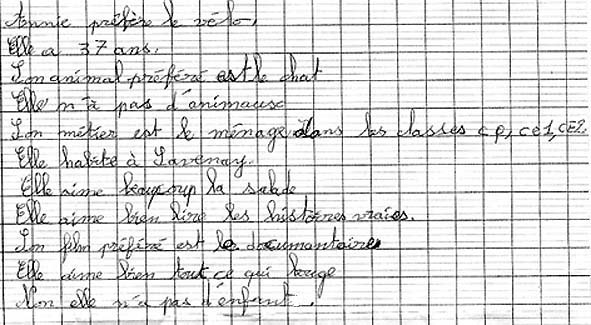 Annie préfère le vélo.
Elle a 37 ans.
Son animal préféré est le chat
Elle n'a pas d'animause
Son métier est le ménage dans les classes CP, CE1, CE2.
Elle habite à Savenay.
Elle aime beaucoup la salade
Elle aime bien lire les histoires vraies.
Son film préféré est le documentaire
Elle aime bien tout ce qui bouge
Non elle n'a pas d'enfant.